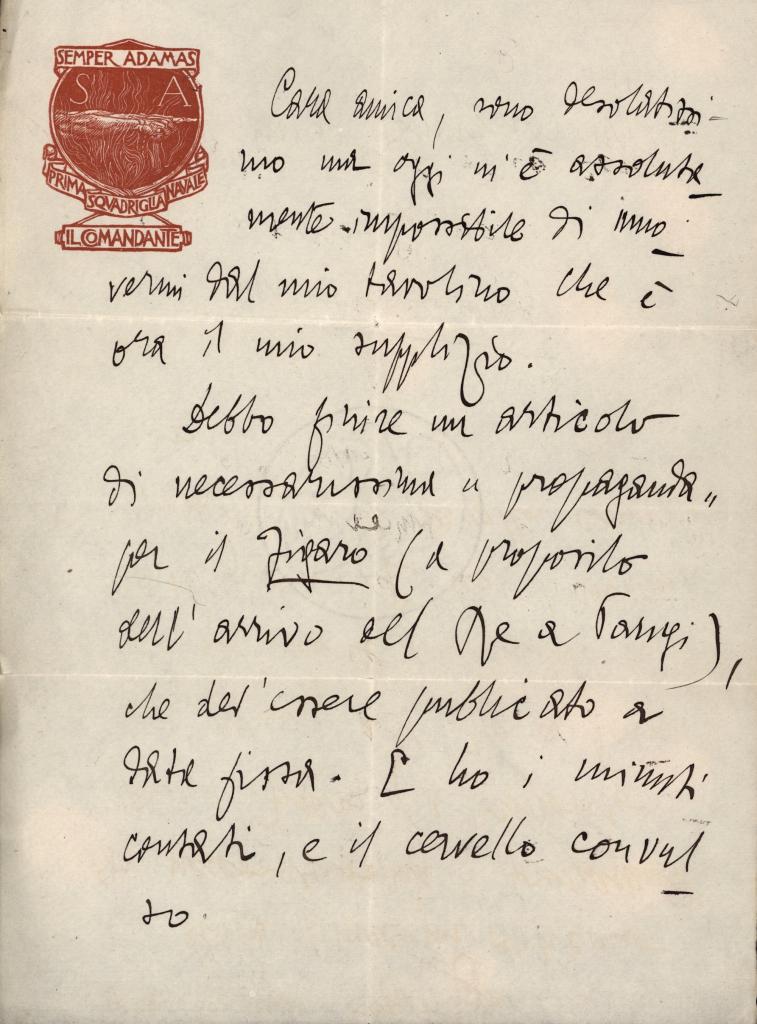 SEMPER ADAMAS
S A
PRIMA SQVADRIGLIA NAVALE
IL COMANDANTE
Cara amica, sono desolatissi-
mo ma oggi m'è assoluta
mente impossibile di muo
vermi dal mio tavolino che è
ora il mio supplizio.
Debbo finire un articolo
di necessarissima „propaganda„
per il Figaro (a proposito
dell'arrivo del Re a Parigi),
che dev'essere pubblicato a
data fissa. E ho i minuti
contati, e il cervello convul
so.